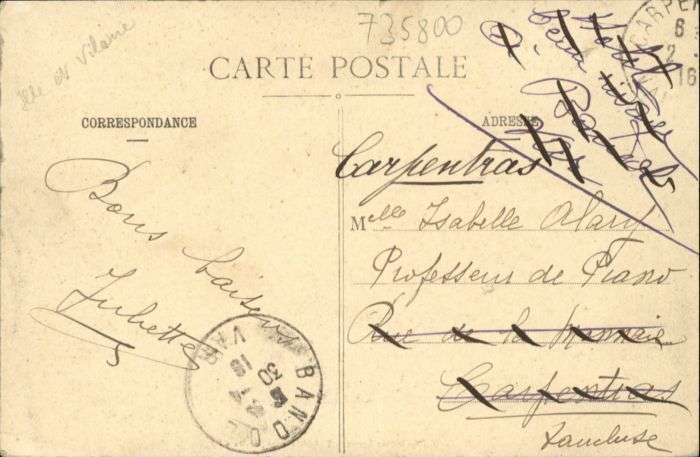 735800
Ille et Vilaine
CARTE POSTALE
CORRESPONDANCE
ADRESSE
Bons baisers
Juliette
Carpentras
Melle Isabelle Alary
Professeur de Piano
Rue de la Monnaie
Carpentras
Vaucluse
Hotel
Bandol
Var
CARPEN
6
2
16
BANDOL
30
VAR